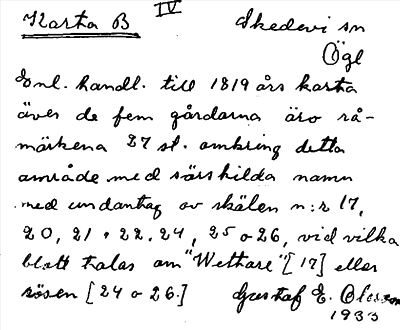 Karta B IV Skedevi sn
Ögl
Enl. handl. till 1819 års karta
över de fem gårdarna äro rå-
märkena 27 st. omkring detta
område med särskilda namn
med undantag av skälen n:r 17,
20, 21 o 22. 24, 25 o 26, vid vilka
blott talas om "Wethare" [17] eller
rösen [24 o 26.] Gustaf E. Olsson
1933